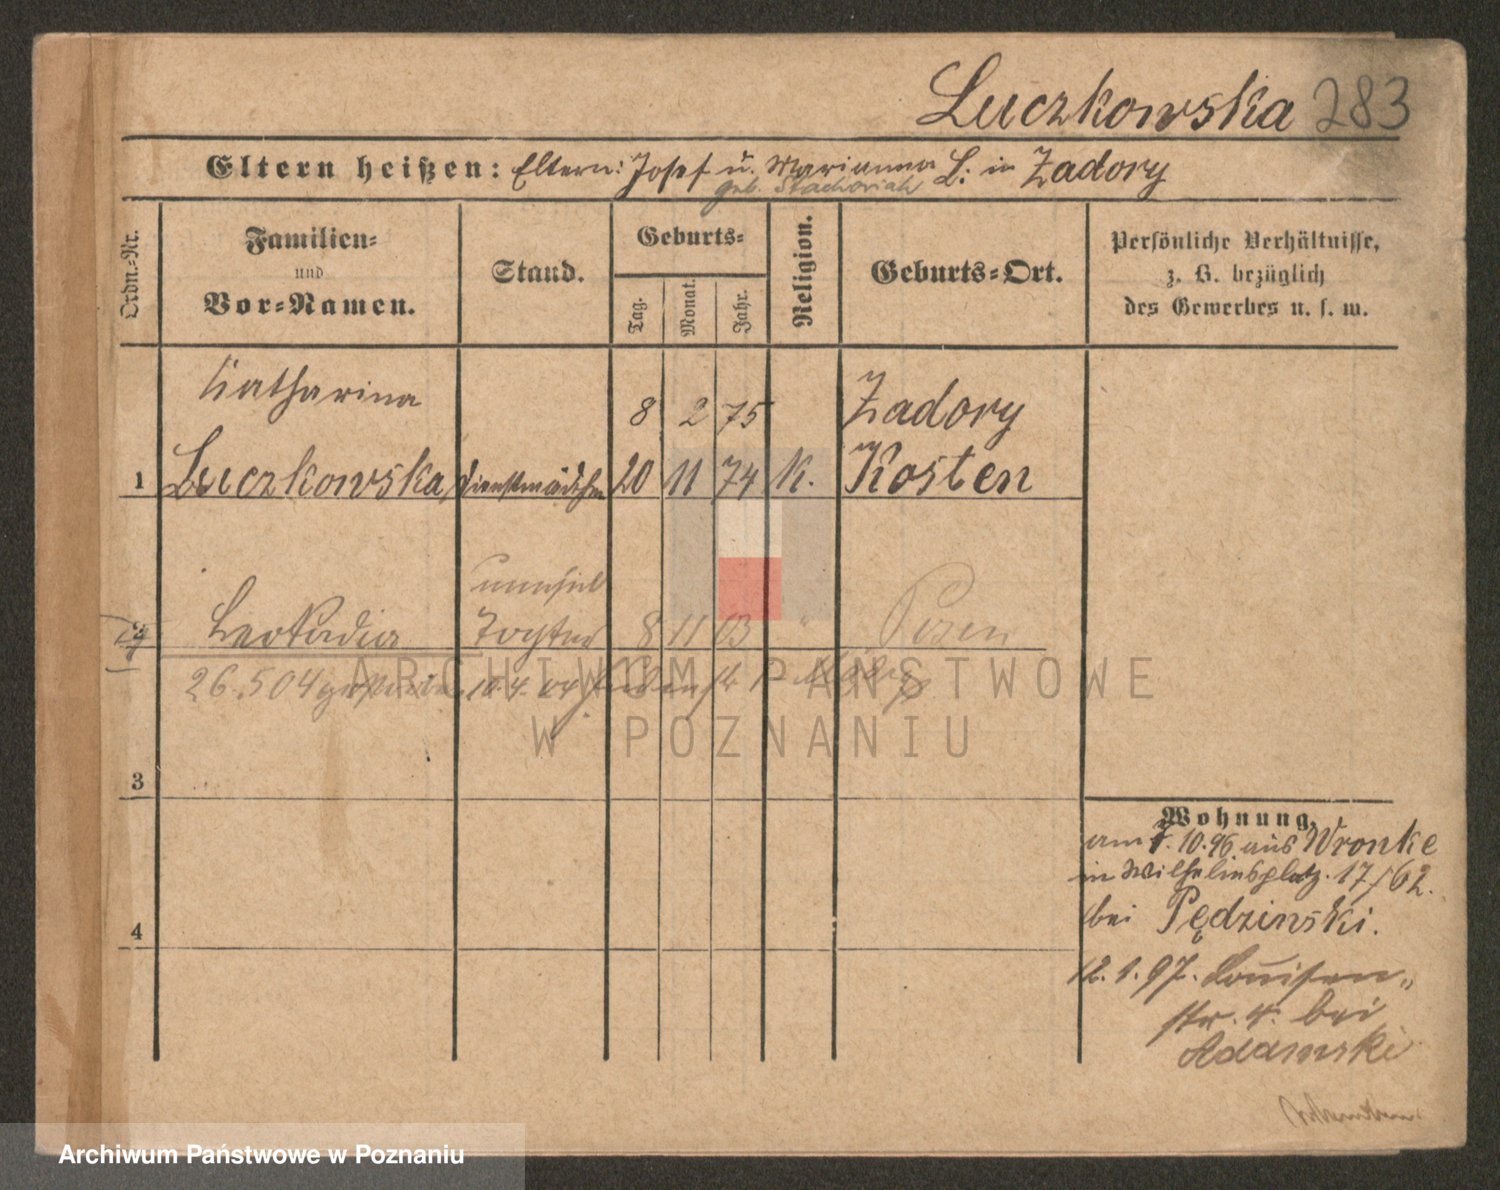 Luczkowska 283
Eltern heißen: Eltern: Josef u. Marianna L: in Zadory
geb. Stachowiak
Ordn.-Nr.
Familien-
und
Vor-Namen.
Stand.
Geburts-
Tag.
Monat.
Jahr.
Religion.
Geburts-Ort.
Persönliche Verhältnisse,
z. B. bezüglich
des Gewerbes u. s. w.
Katharina 8 2 75 Zadory
1 Luczkowska, Dienstmädchen 20 11 74 K. Kosten
unehel
2 Leokadia Tochter 8 11 03 " Posen
26.504 gestorben 10.4.04
ARCHIWUM PAŃSTWOWE
W POZNANIU
3
4
Wohnung.
am 1.10.96 aus Wronke
in Wilhelmsplatz. 17/62.
bei Pędzinski.
12.1.97. Louisen-
str. 4. bei
Adamski
Archiwum Państwowe w Poznaniu